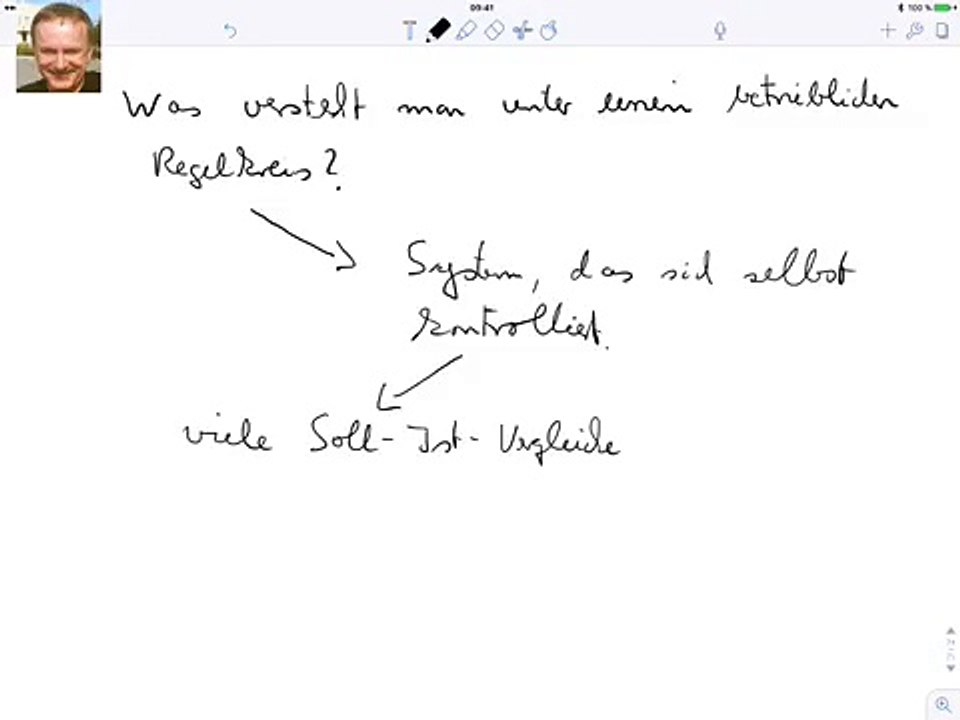 09:41
100 %
T
Was versteht man unter einem betrieblichen
Regelkreis?
System, das sich selbst
kontrolliert.
viele Soll-Ist-Vergleiche